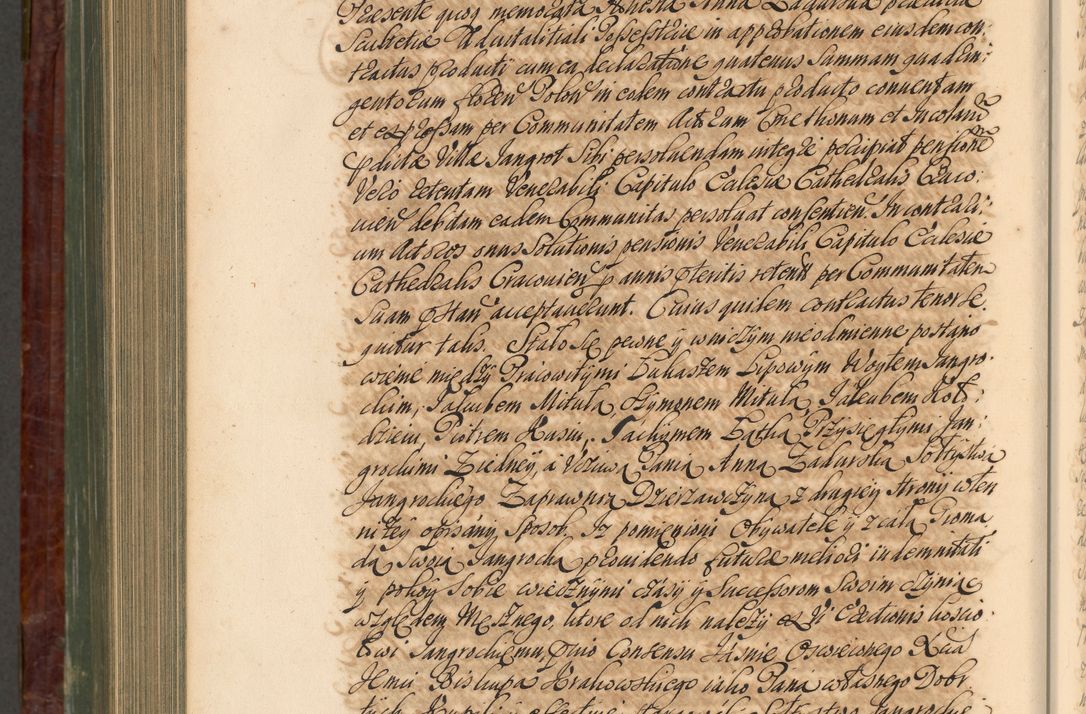 Præsente quoq memorata Honesta Anna Zadurska prædicta
Scultetiæ Advitalitiali Possessrice in approbationem eiusdem con:
tractus producti cum ea declaratione quatenus Summam quadrin:
gentorum floren Polon in eodem contractu producto conventam
et expressam per Communitatem Actorum Cmethonum et Incolarum
pdictæ Villæ Jangrot Sibi persolvendam integre percipiat pensione
Vero retentam Venerabili Capitulo Ecclesiæ Cathedralis Craco:
vien debitam eadem Communitas persolvat consentien. In contrari:
um Actores onus Solutionis pensionis Venerabili Capitulo Ecclesiæ
Cathedralis Cracovien p annis pteritis retentæ per Communitatem
Suam pstari acceptaverunt. Cuius quidem contractus tenor se:
quitur talis. Stało się pewne y wniczym nieodmienne postano
wienie między Pracowitymi Łukaszem Lipowym Woytem Jangro
ckim, Jakubem Mitulą, Szymonem Mitulą, Jakubem Koł:
dzieiu, Piotrem Kasiu, Jachymem Łatką Przysięgłymi Jan:
grockimi Z iedney, a Uczciwą Panią Anną Zadurską Sołtystwa
Jangrockiego Zaprawnix Dzierzawczyną z drugiey strony wten
niżey opisany sposob. Iż pomienioni Obywatele y z całą Groma
dą Swoią Jangrocką providendo futuræ meliori indemnitati
y pokoy Sobie wiecznymi czasy y Successorom Swoim czynią
względem Mesznego, które od nich należy ex vi Erectionis kościo
łowi Jangrockiemu, pvio Consensu Jaśnie Oswieconego Xcia
Jemci Biskupa Krakowskiego iako Pana własnego Dobr